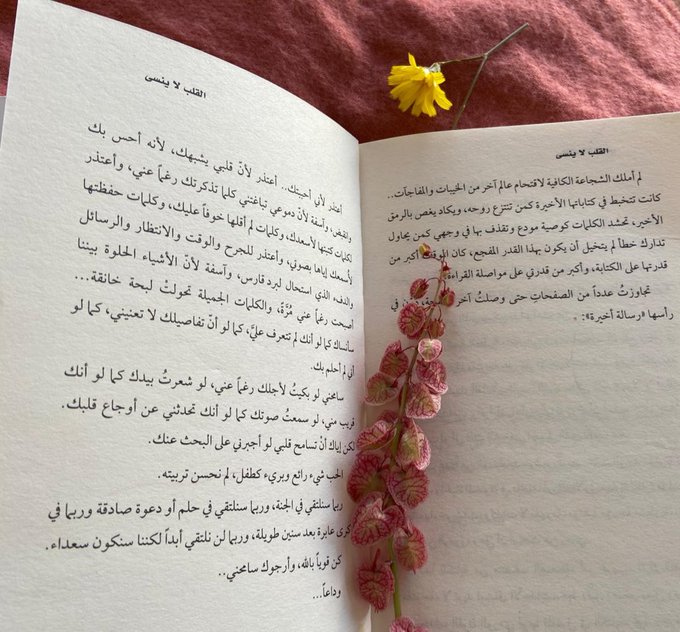 القلب لا ينسى
لم أملك الشجاعة الكافية لاقتحام عالم آخر من الخيبات والمفاجآت..
كانت تتخبط في كتاباتها الأخيرة كمن تنتزع روحه، ويكاد يغص بالرمق
الأخير، تحشد الكلمات كوصية مودع وتقذف بها في وجهي كمن يحاول
تدارك خطأ لم يتخيل أن يكون بهذا القدر المفجع، كان الموقف أكبر من
قدرتها على الكتابة، وأكبر من قدرتي على مواصلة القراءة
تجاوزتُ عدداً من الصفحات حتى وصلتُ آخر في
رأسها «رسالة أخيرة»:
القلب لا ينسى
أعتذر لأني أحببتك.. أعتذر لأنّ قلبي يشبهك، لأنه أحس بك
وانقبض، وآسفة لأنّ دموعي تباغتني كلما تذكرتك رغماً عني، وأعتذر
لكلمات كتبتها لأسعدك، وكلمات لم أقلها خوفاً عليك، وكلمات حفظتها
لأسمعك إياها بصوتي، وأعتذر للجرح والوقت والانتظار والرسائل
والدفء الذي استحال لبرد قارس، وآسفة لأنّ الأشياء الحلوة بيننا
أصبحت رغماً عني مُرَّةً، والكلمات الجميلة تحولتْ لبحة خانقة...
سأنساك كما لو أنك لم تتعرف عليّ، كما لو أنّ تفاصيلك لا تعنيني، كما لو
أني لم أحلم بك.
سامحني لو بكيتُ لأجلك رغماً عني، لو شعرتُ بيدك كما لو أنك
قريب مني، لو سمعتُ صوتك كما لو أنك تحدثني عن أوجاع قلبك.
لكن إياك أنْ تسامح قلبي لو أجبرني على البحث عنك.
الحب شيء رائع وبريء كطفل، لم نحسن تربيته.
ربما سنلتقي في الجنة، وربما سنلتقي في حلم أو دعوة صادقة وربما في
ذكرى عابرة بعد سنين طويلة، وربما لن نلتقي أبداً لكننا سنكون سعداء.
كن قوياً بالله، وأرجوك سامحني..
وداعاً...